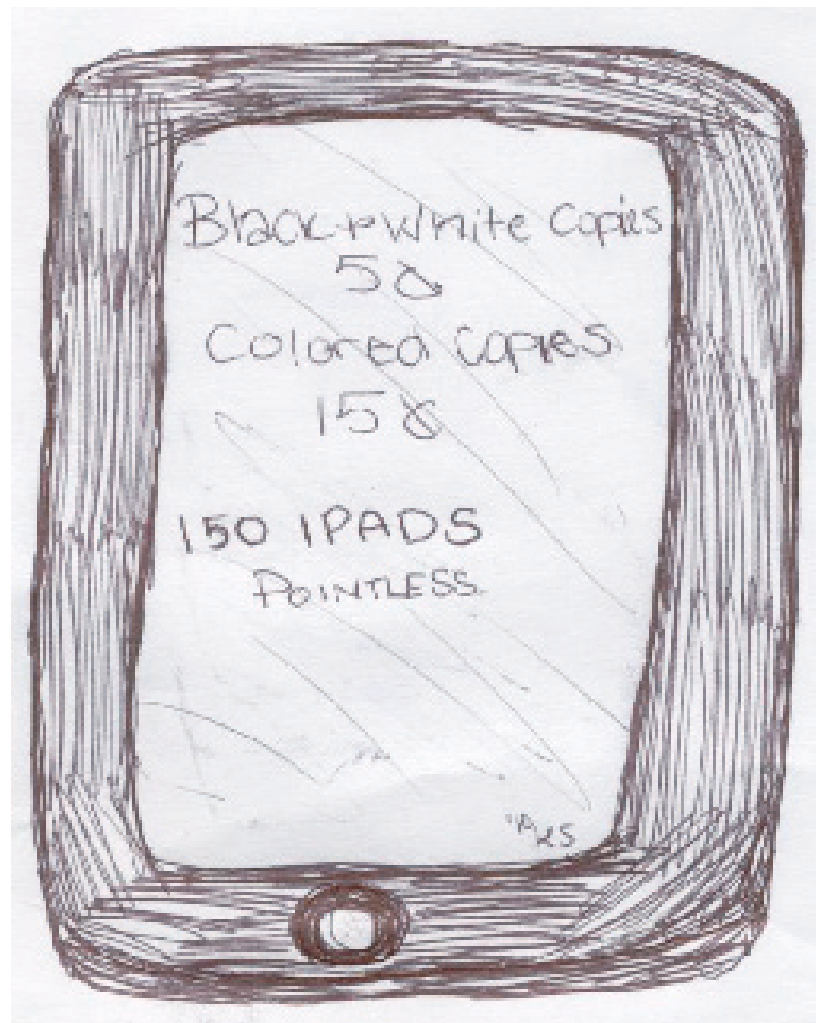 Black + White Copies
5¢
Colored Copies
15¢
150 IPADS
POINTLESS